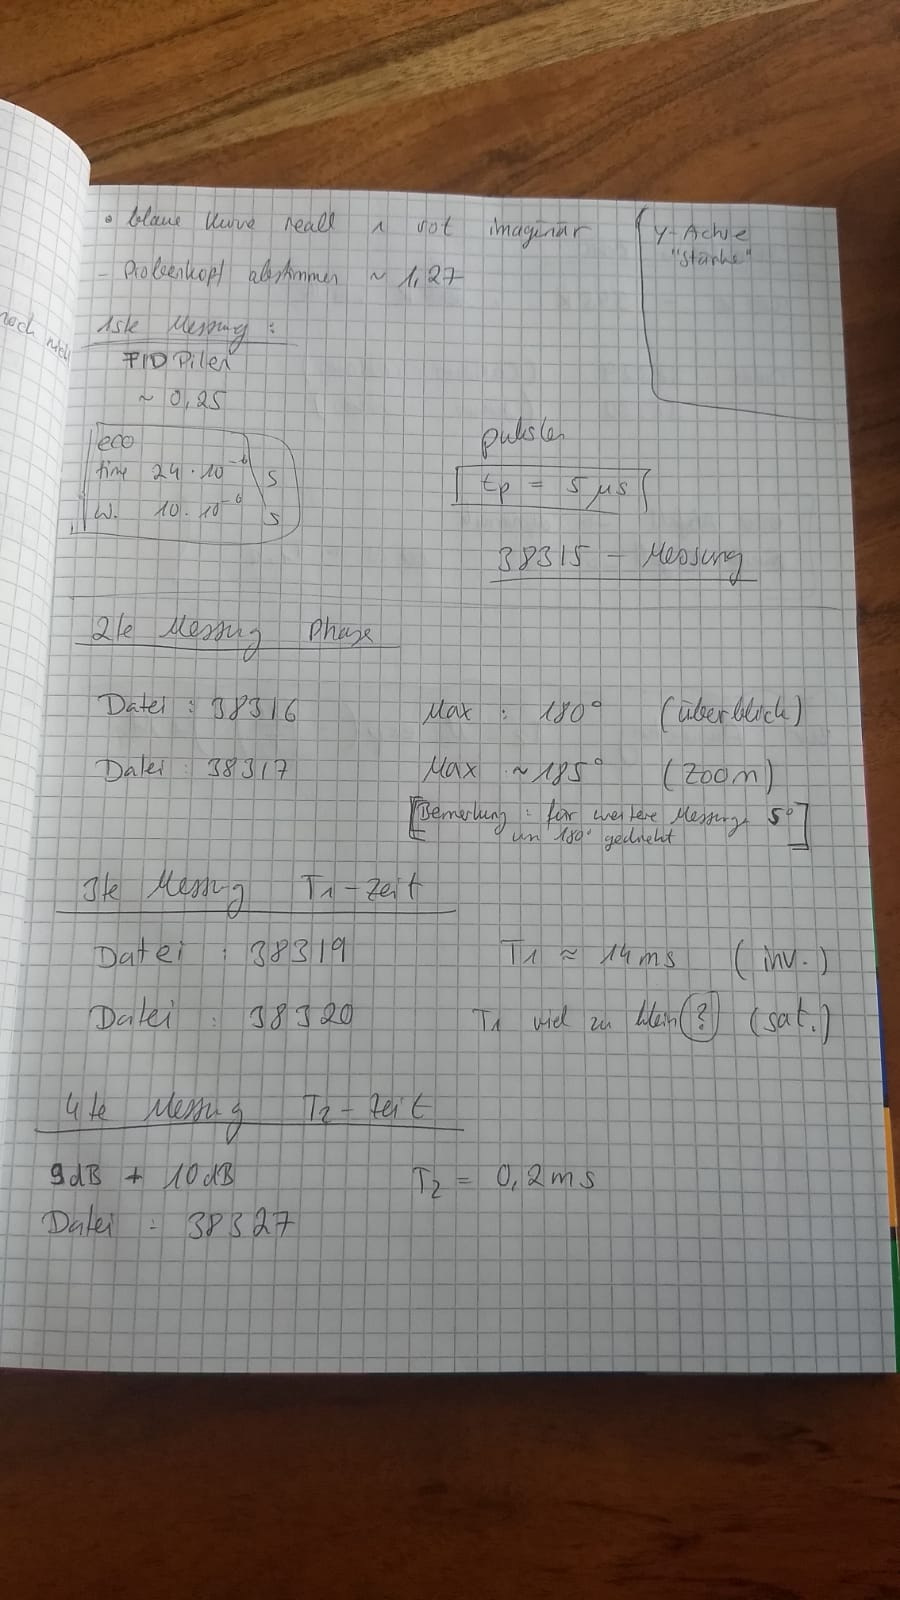 • blaue Kurve reall ∧ rot imaginär
y-Achse
"Stärke"
- Probenkopf abstimmen ~ 1,27
noch nicht
1ste Messung :
FID
~ 0,25
eco
time 24 · 10⁻⁶ s
w. 10 · 10⁻⁶ s
tp = 5 μs
38315 - Messung
2te Messung Phase
Datei : 38316 Max : 180° (überblick)
Datei : 38317 Max ~ 185° (Zoom)
[Bemerkung : für weitere Messung 5°
um 180° gedreht]
3te Messung T1-Zeit
Datei : 38319 T1 ≈ 14 ms (inv.)
Datei : 38320 T1 viel zu klein (?) (sat.)
4te Messung T2-Zeit
9dB + 10dB T2 = 0,2 ms
Datei : 38327